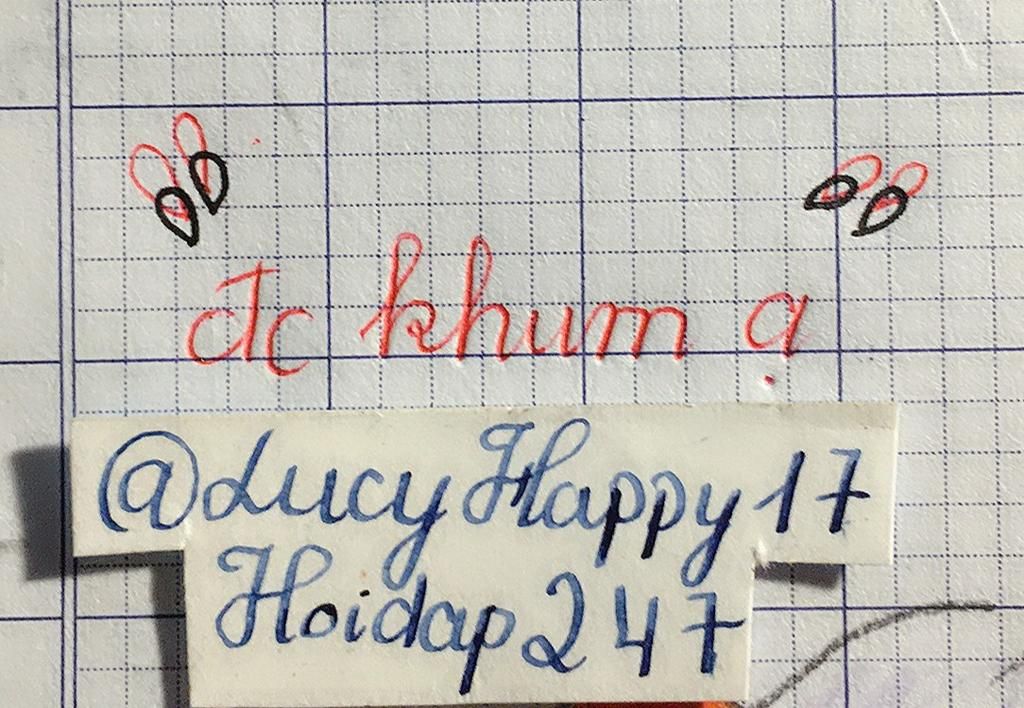 đc khum ạ
@LucyHappy17
Hoidap247